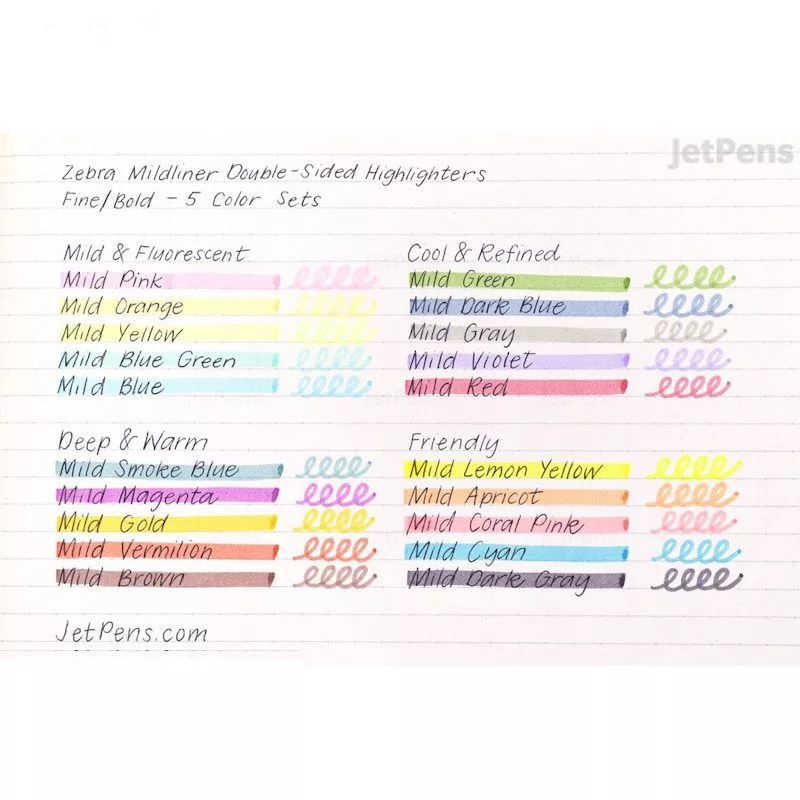 JetPens
Zebra Mildliner Double-Sided Highlighters
Fine/Bold - 5 Color Sets
Mild & Fluorescent
Mild Pink
Mild Orange
Mild Yellow
Mild Blue Green
Mild Blue
Cool & Refined
Mild Green
Mild Dark Blue
Mild Gray
Mild Violet
Mild Red
Deep & Warm
Mild Smoke Blue
Mild Magenta
Mild Gold
Mild Vermilion
Mild Brown
Friendly
Mild Lemon Yellow
Mild Apricot
Mild Coral Pink
Mild Cyan
Mild Dark Gray
JetPens.com